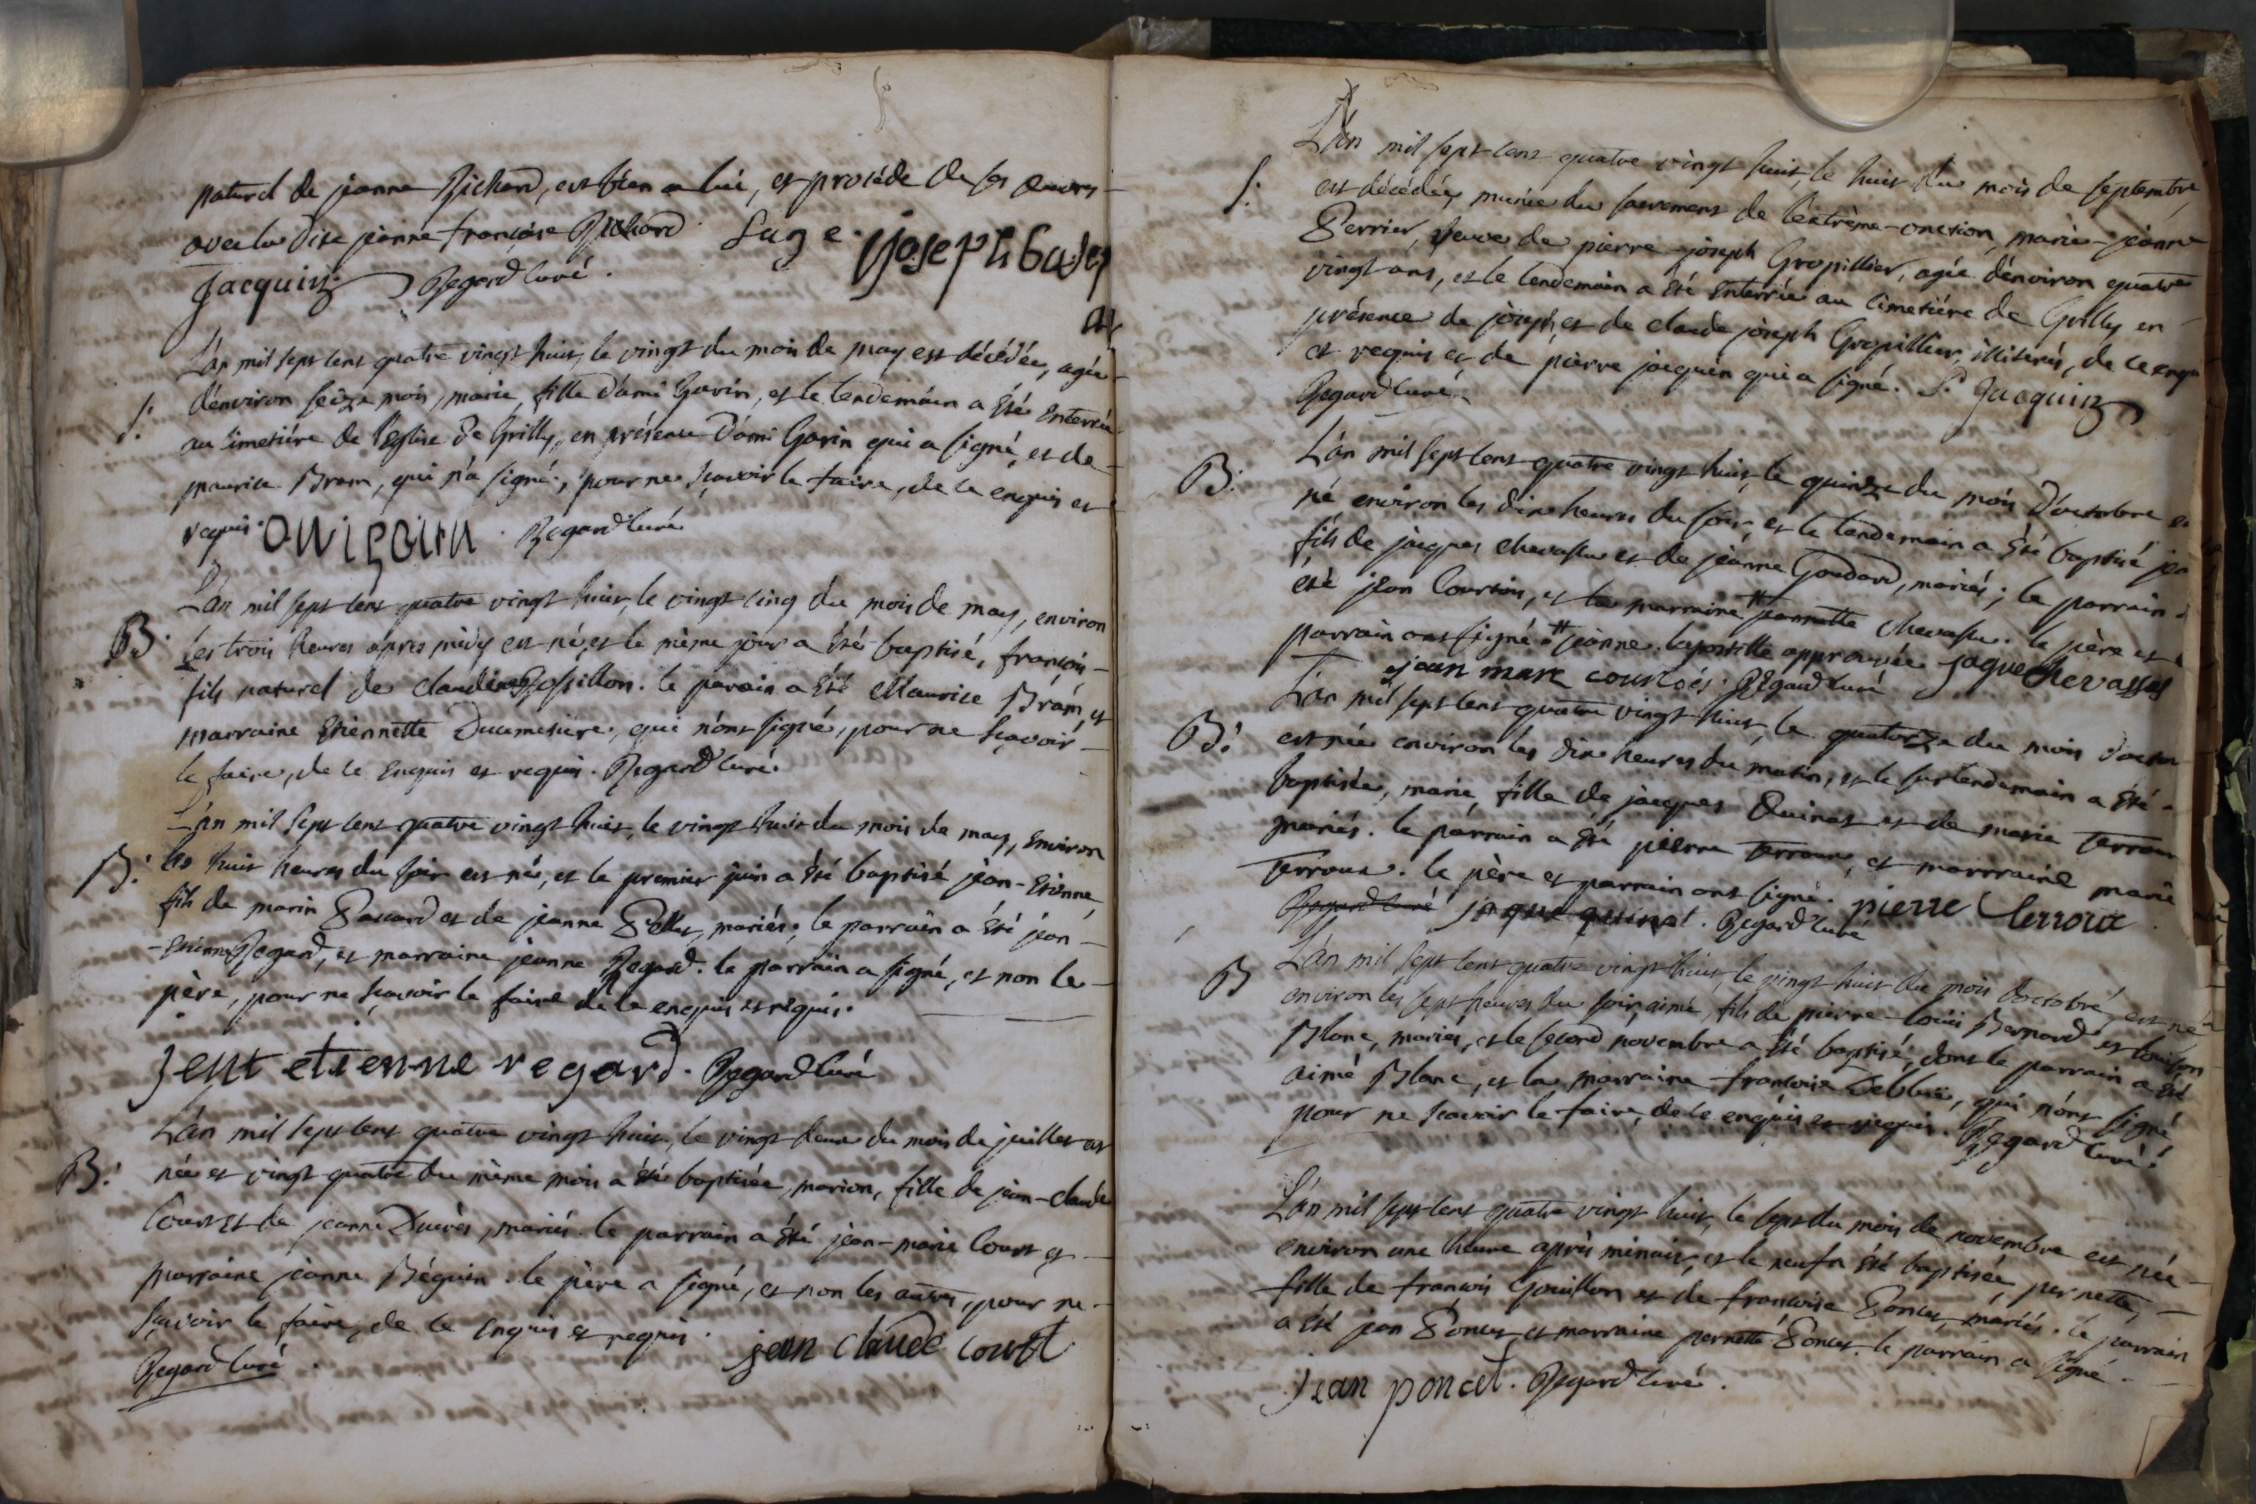 naturel de jeanne Richard, est bien a lui, et procéde de ses œuvres
avec la dite jeanne françoise Richard.
Jacquin Regard curé.
L'án mil sept cent quatre vingt huit, le vingt du mois de may est décédée, agée
d'environ seize mois, marie, fille d'ami Gavin, et le lendemain a été enterrée
S.
au cimetiére de l'Eglise de Grilly, en présence d'ami Gavin qui a signé, et de
maurice Bram, qui n'a signé, pour ne sçavoir le faire, de ce enquis et
requis. Regard curé
L'an mil sept cent quatre vingt huit, le vingt cinq du mois de may, environ
B.
les trois heures aprés midy est né, et le même jour a été baptisé, françois
fils naturel de claudine Rossillon. le parain a été Maurice Bram, et
marraine Etiennette Ducimetiere, qui n'ont signé, pour ne sçavoir
le faire, de ce enquis et requis. Regard curé.
L'án mil sept cent quatre vingt huit, le vingt huit du mois de may, environ
B.
les huit heures du soir est né, et le premier juin a été baptisé jean-Etienne
fils de marin Pauard et de jeanne Pellet, mariés; le parrain a été jean
Etienne Regard, et marraine jeanne Regard. le parrain a signé, et non le
père, pour ne sçavoir le faire de ce enquis et requis.
jent etienne regard. Regard curé
L'án mil sept cent quatre vingt huit, le vingt deux du mois de juillet est
B.
née et vingt quatre du même mois a été baptisée, marion, fille de jean-claude
Court et de jeanne Ducrès, mariés. le parrain a été jean-marie Court et
marraine jeanne Béguin. le père a signé, et non les autres, pour ne
sçavoir le faire, de ce enquis et requis. jean claude court
Regard curé.
L'án mil sept cent quatre vingt huit, le huit du mois de septembre,
S.
est décédée, munie du sacrement de l'extrême-onction, marie-jeanne
Perrier, veuve de pierre joseph Gropillier, agée d'environ quatre
vingt ans, et le lendemain a été enterrée au cimetiére de Grilly en
présence de joseph, et de claude joseph Gropillier, illiterés, de ce enquis
et requis et de pierre jacquin qui a signé. P. Jacquin
Regard curé
L'án mil sept cent quatre vingt huit, le quinze du mois d'octobre
B.
né environ les dix heures du soir, et le lendemain a été baptisé
fils de jacques chevassus et de jeanne Goudard, mariés; le parrain
été jean Courtois, et la marraine # pernette chevassu. le père et
parrain ont signé # jeanne. l'apostille approuvée jaque chevassus
jean marc courtois. Regard curé
L'án mil sept cent quatre vingt huit, le quatorze du mois
B.
est née environ les dix heures du matin, et le surlendemain a été
baptisée, marie, fille de jacques Quinet et de marie Terroux
mariés. le parrain a été pierre Terroux, et marraine marie
Terroux. le père et parrain ont signé. pierre Terroux
Regard curé jaque quinet. Regard curé
L'án mil sept cent quatre vingt huit, le vingt huit du mois d'octobre, est né
B
environ les sept heures du soir, aimé, fils de pierre-Loüis Bernard et
Blanc, mariés, et le second novembre a été baptisé, dont le parrain a été
aimé Blanc, et la marraine françoise qui n'ont signé
pour ne sçavoir le faire, de ce enquis et requis. Regard curé.
L'án mil sept cent quatre vingt huit, le sept du mois de novembre est née
environ une heure après minuit, et le neuf a été baptisée, pernette,
fille de françois Gouillon et de françoise Poncet, mariés. le parrain
a été jean Poncet et marraine pernette Poncet. le parrain a signé.
jean poncet. Regard curé.